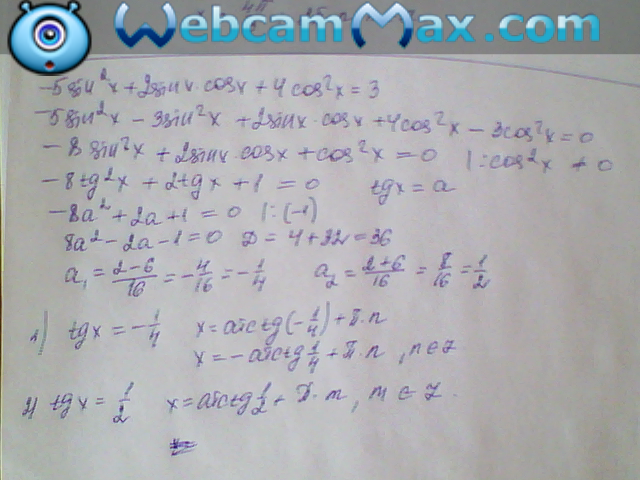 WebcamMax.com
-5sin²x + 2sinx·cosx + 4cos²x = 3
-5sin²x - 3sin²x + 2sinx·cosx + 4cos²x - 3cos²x = 0
-8sin²x + 2sinx·cosx + cos²x = 0 |:cos²x ≠ 0
-8tg²x + 2tgx + 1 = 0 tgx = a
-8a² + 2a + 1 = 0 |:(-1)
8a² - 2a - 1 = 0 D = 4 + 32 = 36
a₁ = (2-6)/16 = -4/16 = -1/4 a₂ = (2+6)/16 = 8/16 = 1/2
1) tgx = -1/4 x = arctg(-1/4) + π·n
x = -arctg 1/4 + π·n, n∈Z
2) tgx = 1/2 x = arctg 1/2 + π·m, m∈Z.